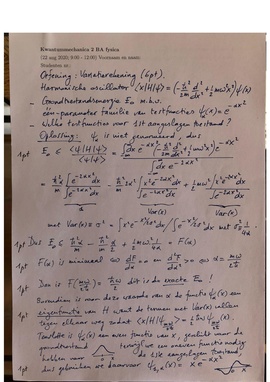 Kwantummechanica 2 BA fysica
(22 aug 2020; 9:00 - 12:00) Voornaam en naam:
Studentnr nr.:
Oefening: Variatierekening (6pt).
Harmonische oscillator <x|H|ψ> = (-ħ²/2m d²/dx² + ½mω²x²)ψ(x)
- Grondtoestandsenergie E₀ m.b.v.
één-parameter familie van testfuncties ψ(x) = e^-αx²
- Welke testfuncties voor 1ste aangeslagen toestand?
Oplossing: ψ is niet genormeerd, dus
1pt E₀ ≤ <ψ|H|ψ>/<ψ|ψ> = ∫dx e^-αx² (-ħ²/2m d²/dx² + ½mω²x²) e^-αx² / ∫dx e^-2αx²
= ħ²α/m ∫e^-2αx²dx/∫e^-2αx²dx - ħ²/m 2α² ∫x²e^-2αx²dx/∫e^-2αx²dx + ½mω² ∫x²e^-2αx²dx/∫e^-2αx²dx
1 Var(x) Var(x)
met Var(x) = σ² = ∫x²e^-x²/2σ²dx / ∫e^-x²/2σ²dx met σ² = 1/4α
1pt Dus E₀ ≤ ħ²α/m - ħ²α/2m + ½mω² 1/4α = F(α)
1pt F(α) is minimaal ⇔ dF/dα = 0 en d²F/dα² > 0 ⇔ α = mω/2ħ
1pt Dus is F(mω/2ħ) = ħω/2 dit is de exacte E₀!
Bovendien is voor deze waarde van α de functie ψ(x) een
eigenfunctie van H want de termen met Var(x) vallen
1pt tegen elkaar weg zodat <x|H|ψ> = ½ħω ψ(x).
Tenslotte is ψ(x) een even functie van x, geschikt voor de
grondtoestand terwijl we een oneven functie nodig
hebben voor de 1ste aangeslagen toestand,
1pt dus gebruiken we daarvoor ψ(x) = x e^-αx²